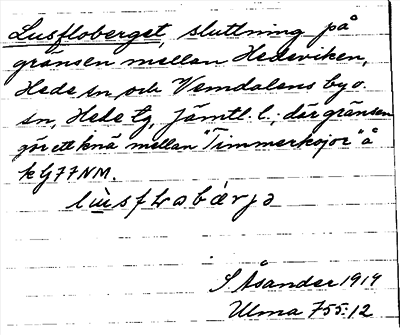 Lusfloberget, sluttning på
gränsen mellan Hedeviken,
Hede sn, och Vemdalens by o.
sn, Hede tg, Jämtl. l.; där gränsen
gör ett knä mellan "Timmerkojor" å
k G77NM.
S Åsander 1914
Ulma 755:12